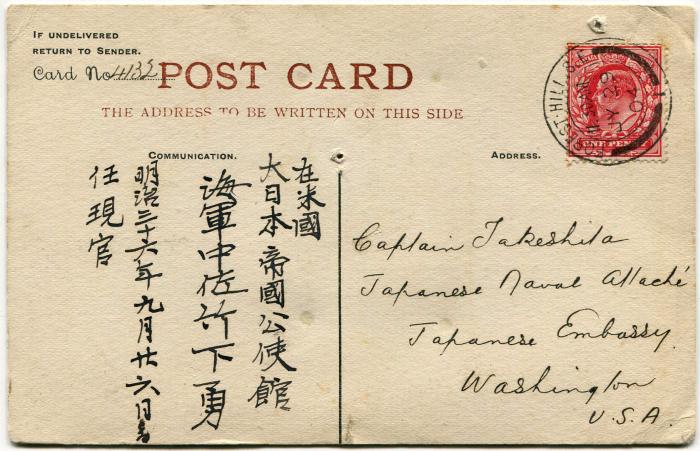 IF UNDELIVERED
RETURN TO SENDER.
Card No 4132
POST CARD
THE ADDRESS TO BE WRITTEN ON THIS SIDE
COMMUNICATION.
ADDRESS.
在米國
大日本帝國公使館
海軍中佐竹下勇
明治三十六年九月廿六日着
任現官
Captain Takeshita
Japanese Naval Attaché
Japanese Embassy
Washington
U.S.A.
FOREST-HILL S.E.
JY 29
07
ONE PENNY